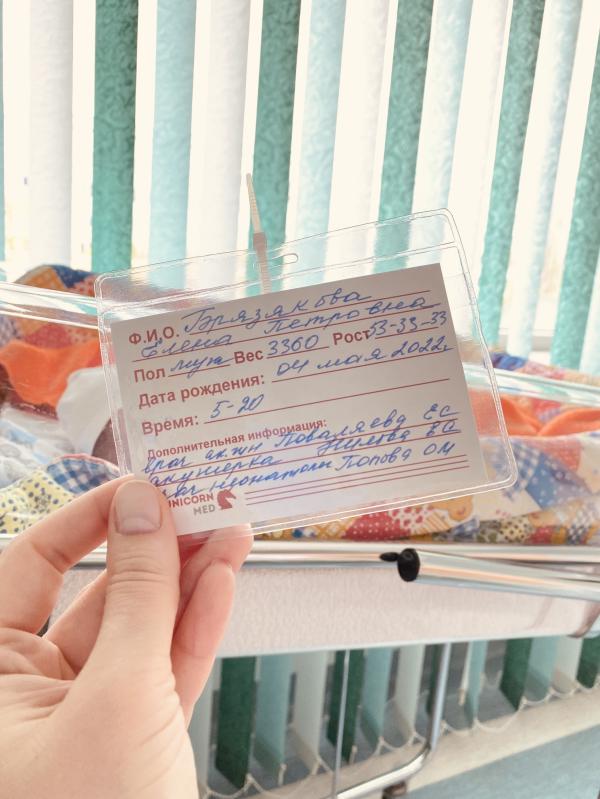 Ф.И.О. Брязякова
Елена Петровна
Пол муж Вес 3360 Рост 53-33-33
Дата рождения: 04 мая 2022г.
Время: 5-20
Дополнительная информация:
врач ак. гин Поваляева ЕС
акушерка ЕВ
врач неонатолог Попова ОМ
UNICORN
MED